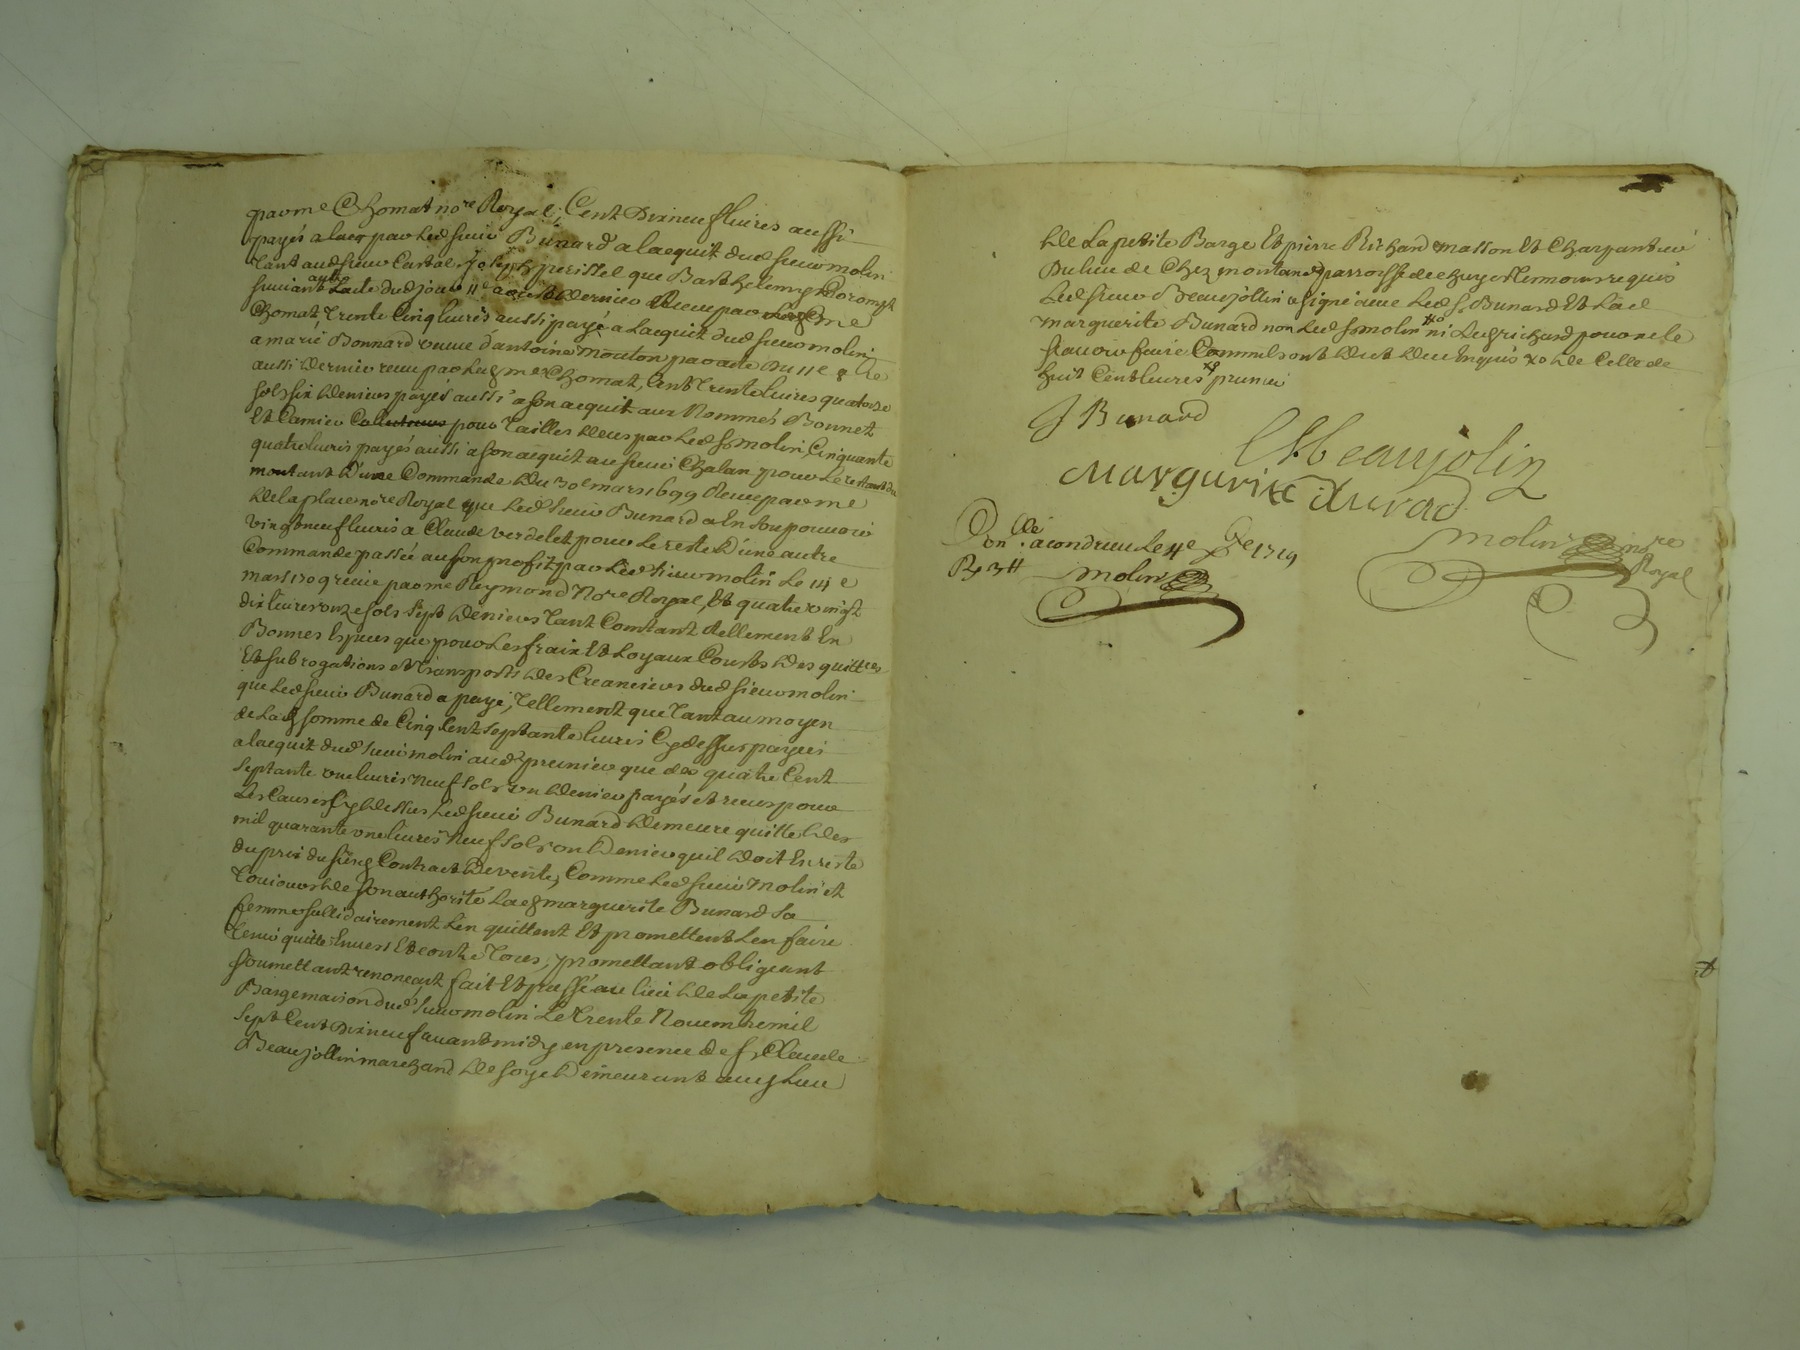 par me Chomat nore Royal, Cent Dixneuf livres aussi
payés a lacq par led sieur Bunard a lacquit dud sieur molin
tant aud sieur Curtal Joseph perissel que Barthelemy
suivant autre acte dud jour 11e aoust dernier Receu par me
Chomat, trente Cinq livres aussi payé a lacquit dud sieur molin
a marie Bonnard veuve d'antoine mouton par acte Du 11e
aussi dernier receu par led me Chomat, Cent trente livres quatorze
sols six deniers payés aussi a son acquit aux Nommés Bonnet
Et Camier pour tailles deues par led sr molin, Cinquante
quatre livres payés aussi a son acquit au sieur Chalan pour le restant du
montant D'une Commande du 30e mars 1699 Receue par me
Delaplace nore Royal que led sieur Bunard a En son pouvoir
vingt neuf livres a Claude verdelet pour le reste D'une autre
Commande passée au son profit par led sieur molin Le 14e
mars 1709 receue par me Reymond Nore Royal, Et quatre vingt
dix livres onze sols sept deniers tant Contant Rellement En
Bonnes Especes que pour Les fraix Et Loyaux Cousts des quittces
Et subrogations et transports des Creanciers dud sieur molin
que led sieur Bunard a payé, tellement que tant au moyen
de lad somme de Cinq Cent septante livres Cy dessus payées
a lacquit dud sieur molin aud premier que de quatre Cent
septante une livres Neuf sols un denier payés et receus pour
Les Causes Cy dessus led sieur Bunard demeure quitte des
mil quarante une livres Neuf sols un denier quil doit En reste
du prix du susd Contract de vente, Comme led sieur Molin et
toujours de son authorité lad marguerite Bunard sa
femme sollidairement L'en quittent Et promettent L'en faire
tenir quitte Envers Et contre tous, promettant obligeant
soumettant renonçant fait Et passé au lieu de La petite
Barge maison dud sieur molin Le trente Novembre mil
sept Cent Dixneuf avant midy en presence de sr Claude
Beaujollin marchand de soye Demeurant aud lieu
de La petite Barge Et pierre Richard masson Et Charpantier
Du lieu de Chez montand parroisse de chuyer temoins requis
Led sieur Beaujollin a signé avec Led sr Bunard Et lad
marguerite Bunard non led sr molin ni led richard pour ne le
scavoir faire Comme ils ont dit deue Enquis xo de Celle de
huit Cent livres premier
J Bunard
C Beaujolin
Margurite
molin nore
Royal
Con lle a condrieu Le 4e Xbre 1719
R 3 tt
molin